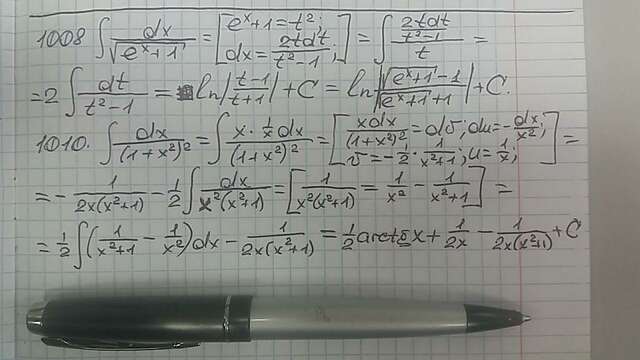 1008 ∫ dx/√(eˣ+1) = [eˣ+1=t²; dx=2tdt/(t²-1);] = ∫ (2tdt/(t²-1))/t =
=2∫ dt/(t²-1) = ln|(t-1)/(t+1)|+C = ln|(√(eˣ+1)-1)/(√(eˣ+1)+1)|+C.
1010. ∫ dx/(1+x²)² = ∫ (x·(1/x)dx)/(1+x²)² = [xdx/(1+x²)²=dv; du=-dx/x²; v=-1/2·1/(x²+1); u=1/x;] =
=-1/(2x(x²+1)) - 1/2∫ dx/(x²(x²+1)) = [1/(x²(x²+1)) = 1/x² - 1/(x²+1)] =
=1/2∫(1/(x²+1) - 1/x²)dx - 1/(2x(x²+1)) = 1/2 arctg x + 1/(2x) - 1/(2x(x²+1)) + C